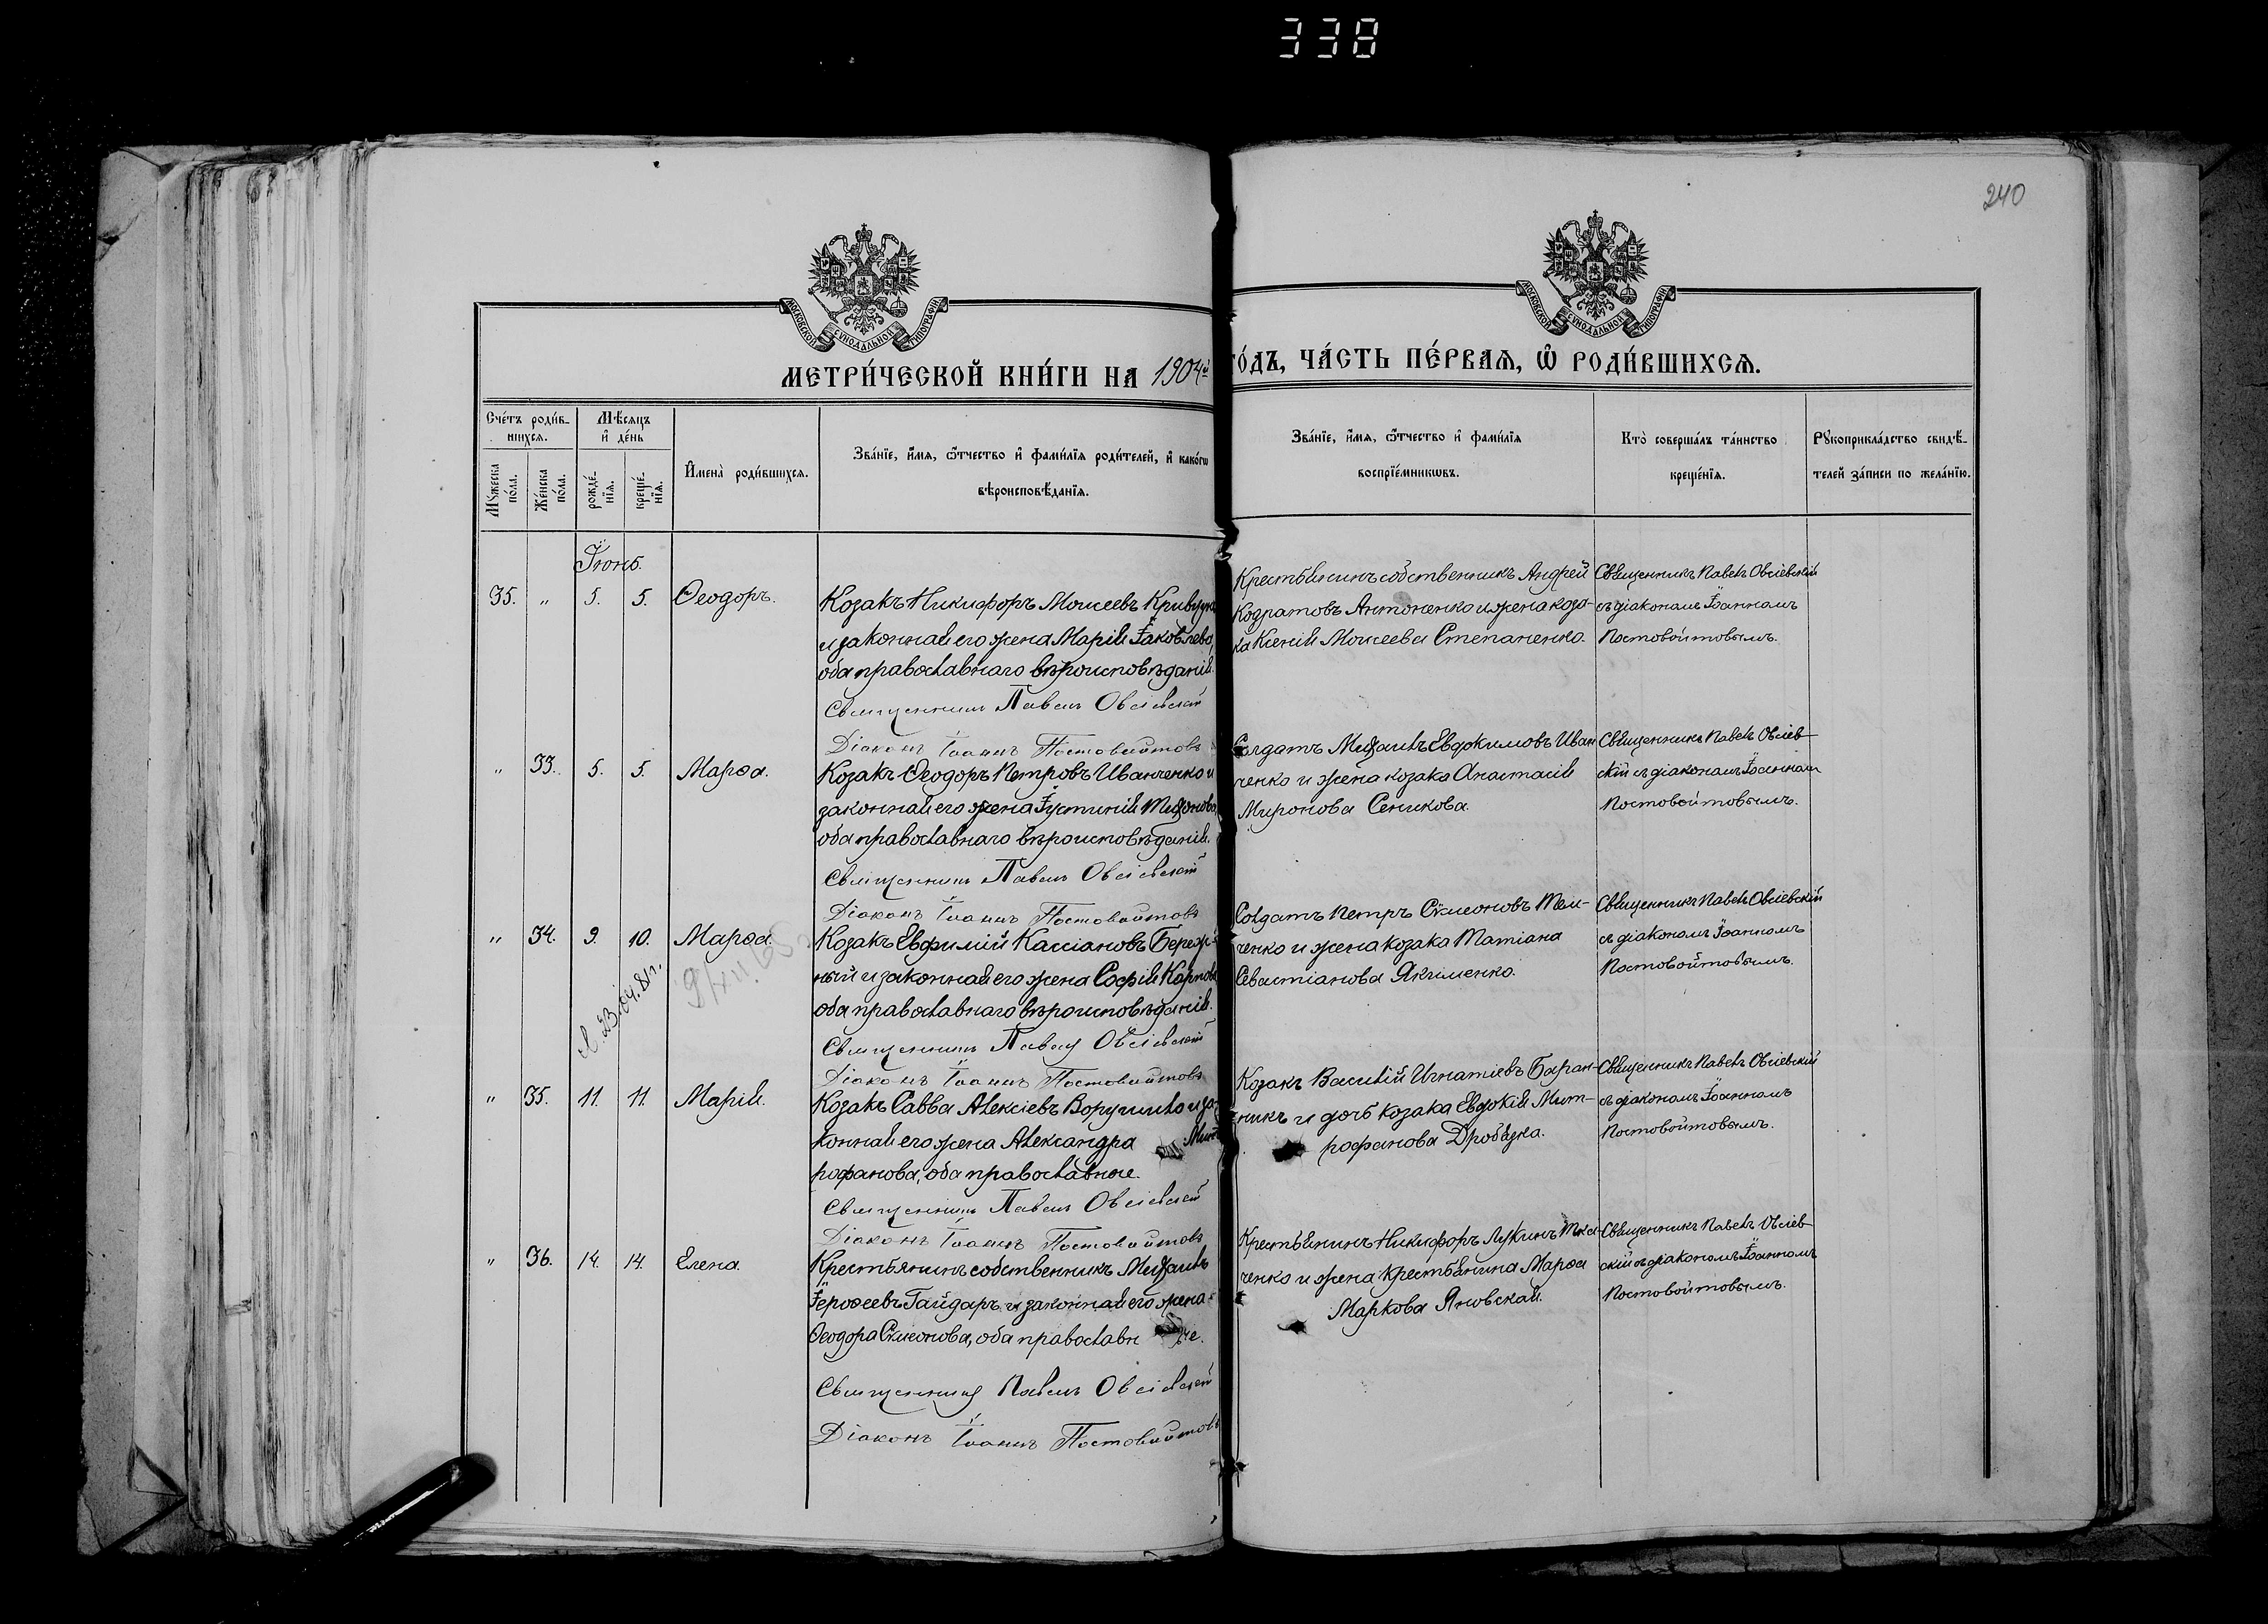 338
240
МОСКОВСКОЙ СѴНОДАЛЬНОЙ ТИПОГРАФІИ
МОСКОВСКОЙ СѴНОДАЛЬНОЙ ТИПОГРАФІИ
МЕТРИ́ЧЕСКОЙ КНИ́ГИ НА 1904й
ГО́ДЪ, ЧА́СТЬ ПЕ́РВАЯ, Ѡ РОДИ́ВШИХСЯ.
Сче́тъ роди́в-
шихся.
Мꙋ́жеска по́ла.
Же́нска по́ла.
Мѣ́сяцъ и҆ де́нь
рожде́-нїя.
креще́-нїя.
И҆мена̀ роди́вшихся.
Зва́нїе, и҆́мя, ѻ҆́тчество и҆ фами́лїя роди́телей, и҆ како́гѡ
вѣроисповѣ́данїя.
Зва́нїе, и҆́мя, ѻ҆́тчество и҆ фами́лїя
воспрїе́мникѡвъ.
Кто̀ соверша́лъ та́инство
креще́нїя.
Рꙋкоприкла́дство свидѣ́-
телей за́писи по жела́нїю.
Іюнь.
35. " 5. 5. Ѳеодоръ.
Козакъ Никифоръ Моисеевъ
и законная его жена Марія Іаковлева,
оба православнаго вѣроисповѣданія.
Священникъ Павелъ Овсіевскій
Діаконъ Іоаннъ Постовойтовъ
Крестьянинъ собственникъ Андрей
Кодратовъ Антоненко и жена коза-
ка Ксенія Моисеева Степаненко.
Священникъ Павелъ Овсіевскій
съ діакономъ Іоанномъ
Постовойтовымъ.
" 33. 5. 5. Марѳа.
Козакъ Ѳеодоръ Петровъ Иванченко и
законная его жена Іустинія
оба православнаго вѣроисповѣданія.
Священникъ Павелъ Овсіевскій
Діаконъ Іоаннъ Постовойтовъ
Солдатъ Михаилъ Евдокимовъ Иван
ченко и жена козака Анастасія
Миронова Сенкова.
Священникъ Павелъ Овсіев-
скій съ діакономъ Іоанномъ
Постовойтовымъ.
" 34. 9. 10. Марѳа.
Козакъ Евфимій Кассіановъ Береж-
ный и законная его жена Софія Карпова
оба православнаго вѣроисповѣданія.
Священникъ Павелъ Овсіевскій
Діаконъ Іоаннъ Постовойтовъ
Солдатъ Петръ Сѵмеоновъ Тем-
ченко и жена козака Татіана
Севастіанова Якименко.
Священникъ Павелъ Овсіевскій
съ діакономъ Іоанномъ
Постовойтовымъ.
" 35. 11. 11. Марія.
Козакъ Савва Алексіевъ и за-
конная его жена Александра Мит-
рофанова, оба православные.
Священникъ Павелъ Овсіевскій
Діаконъ Іоаннъ Постовойтовъ
Козакъ Василій Игнатіевъ Баран-
никъ и дочь козака Евдокія Мит-
рофанова
Священникъ Павелъ Овсіевскій
съ діакономъ Іоанномъ
Постовойтовымъ.
" 36. 14. 14. Елена.
Крестьянинъ собственникъ Михаилъ
Іероѳеевъ Гайдаръ и законная его жена
Ѳеодора Сѵмеонова, оба православные.
Священникъ Павелъ Овсіевскій
Діаконъ Іоаннъ Постовойтовъ
Крестьянинъ Никифоръ Лукинъ Тка-
ченко и жена крестьянина Марѳа
Маркова Яновская.
Священникъ Павелъ Овсіев-
скій съ діакономъ Іоанномъ
Постовойтовымъ.